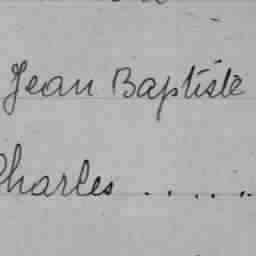 Jean Baptiste
Charles . . . . .